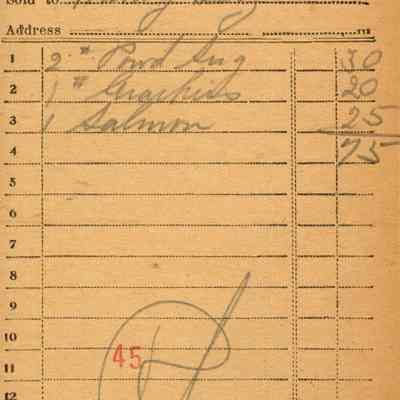 Sold to
Address
1 2 # Powd Sug 30
2 1 # 20
3 1 Salmon 25
4 75
5
6
7
8
9
10
11 45
12